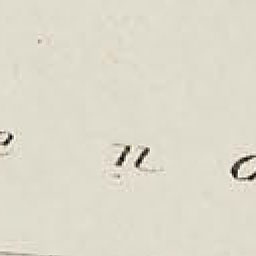 e n a